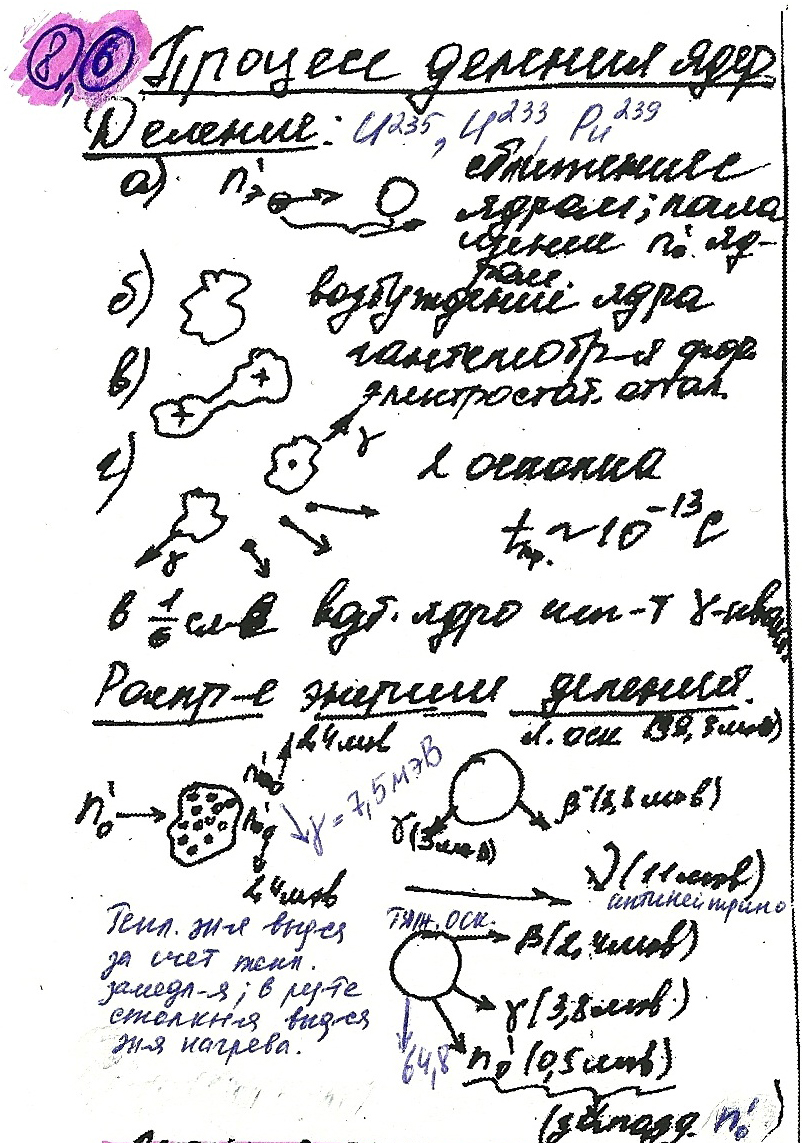 8,6 Процесс деления ядер
Деление: U²³⁵, U²³³, Pu²³⁹
а) n¹₀ сближение с
ядром; погло
щение n¹₀ яд-
ром.
б) возбуждение ядра
в) гантелеобр-я фор
электростат. оттал.
+ +
г) γ 2 осколка
γ
tпр. ~ 10⁻¹³ с
в 1/6 сл-в возб. ядро исп-т γ-квант
Распр-е энергии деления.
2,4 мэв л. оск
n¹₀ γ = 7,5 мэВ β⁻(3,8 мэв)
γ(3 мэв)
2,4 мэв (11 мэв)
антинейтрино
Тепл. эн-я выд-ся
за счет тепл.
замедл-я; в рез-те
столкн-я выд-ся
эн-я нагрева.
тяж. оск.
β(2,4 мэв)
γ(3,8 мэв)
64,8 n¹₀ (0,5 мэв)
n¹₀)